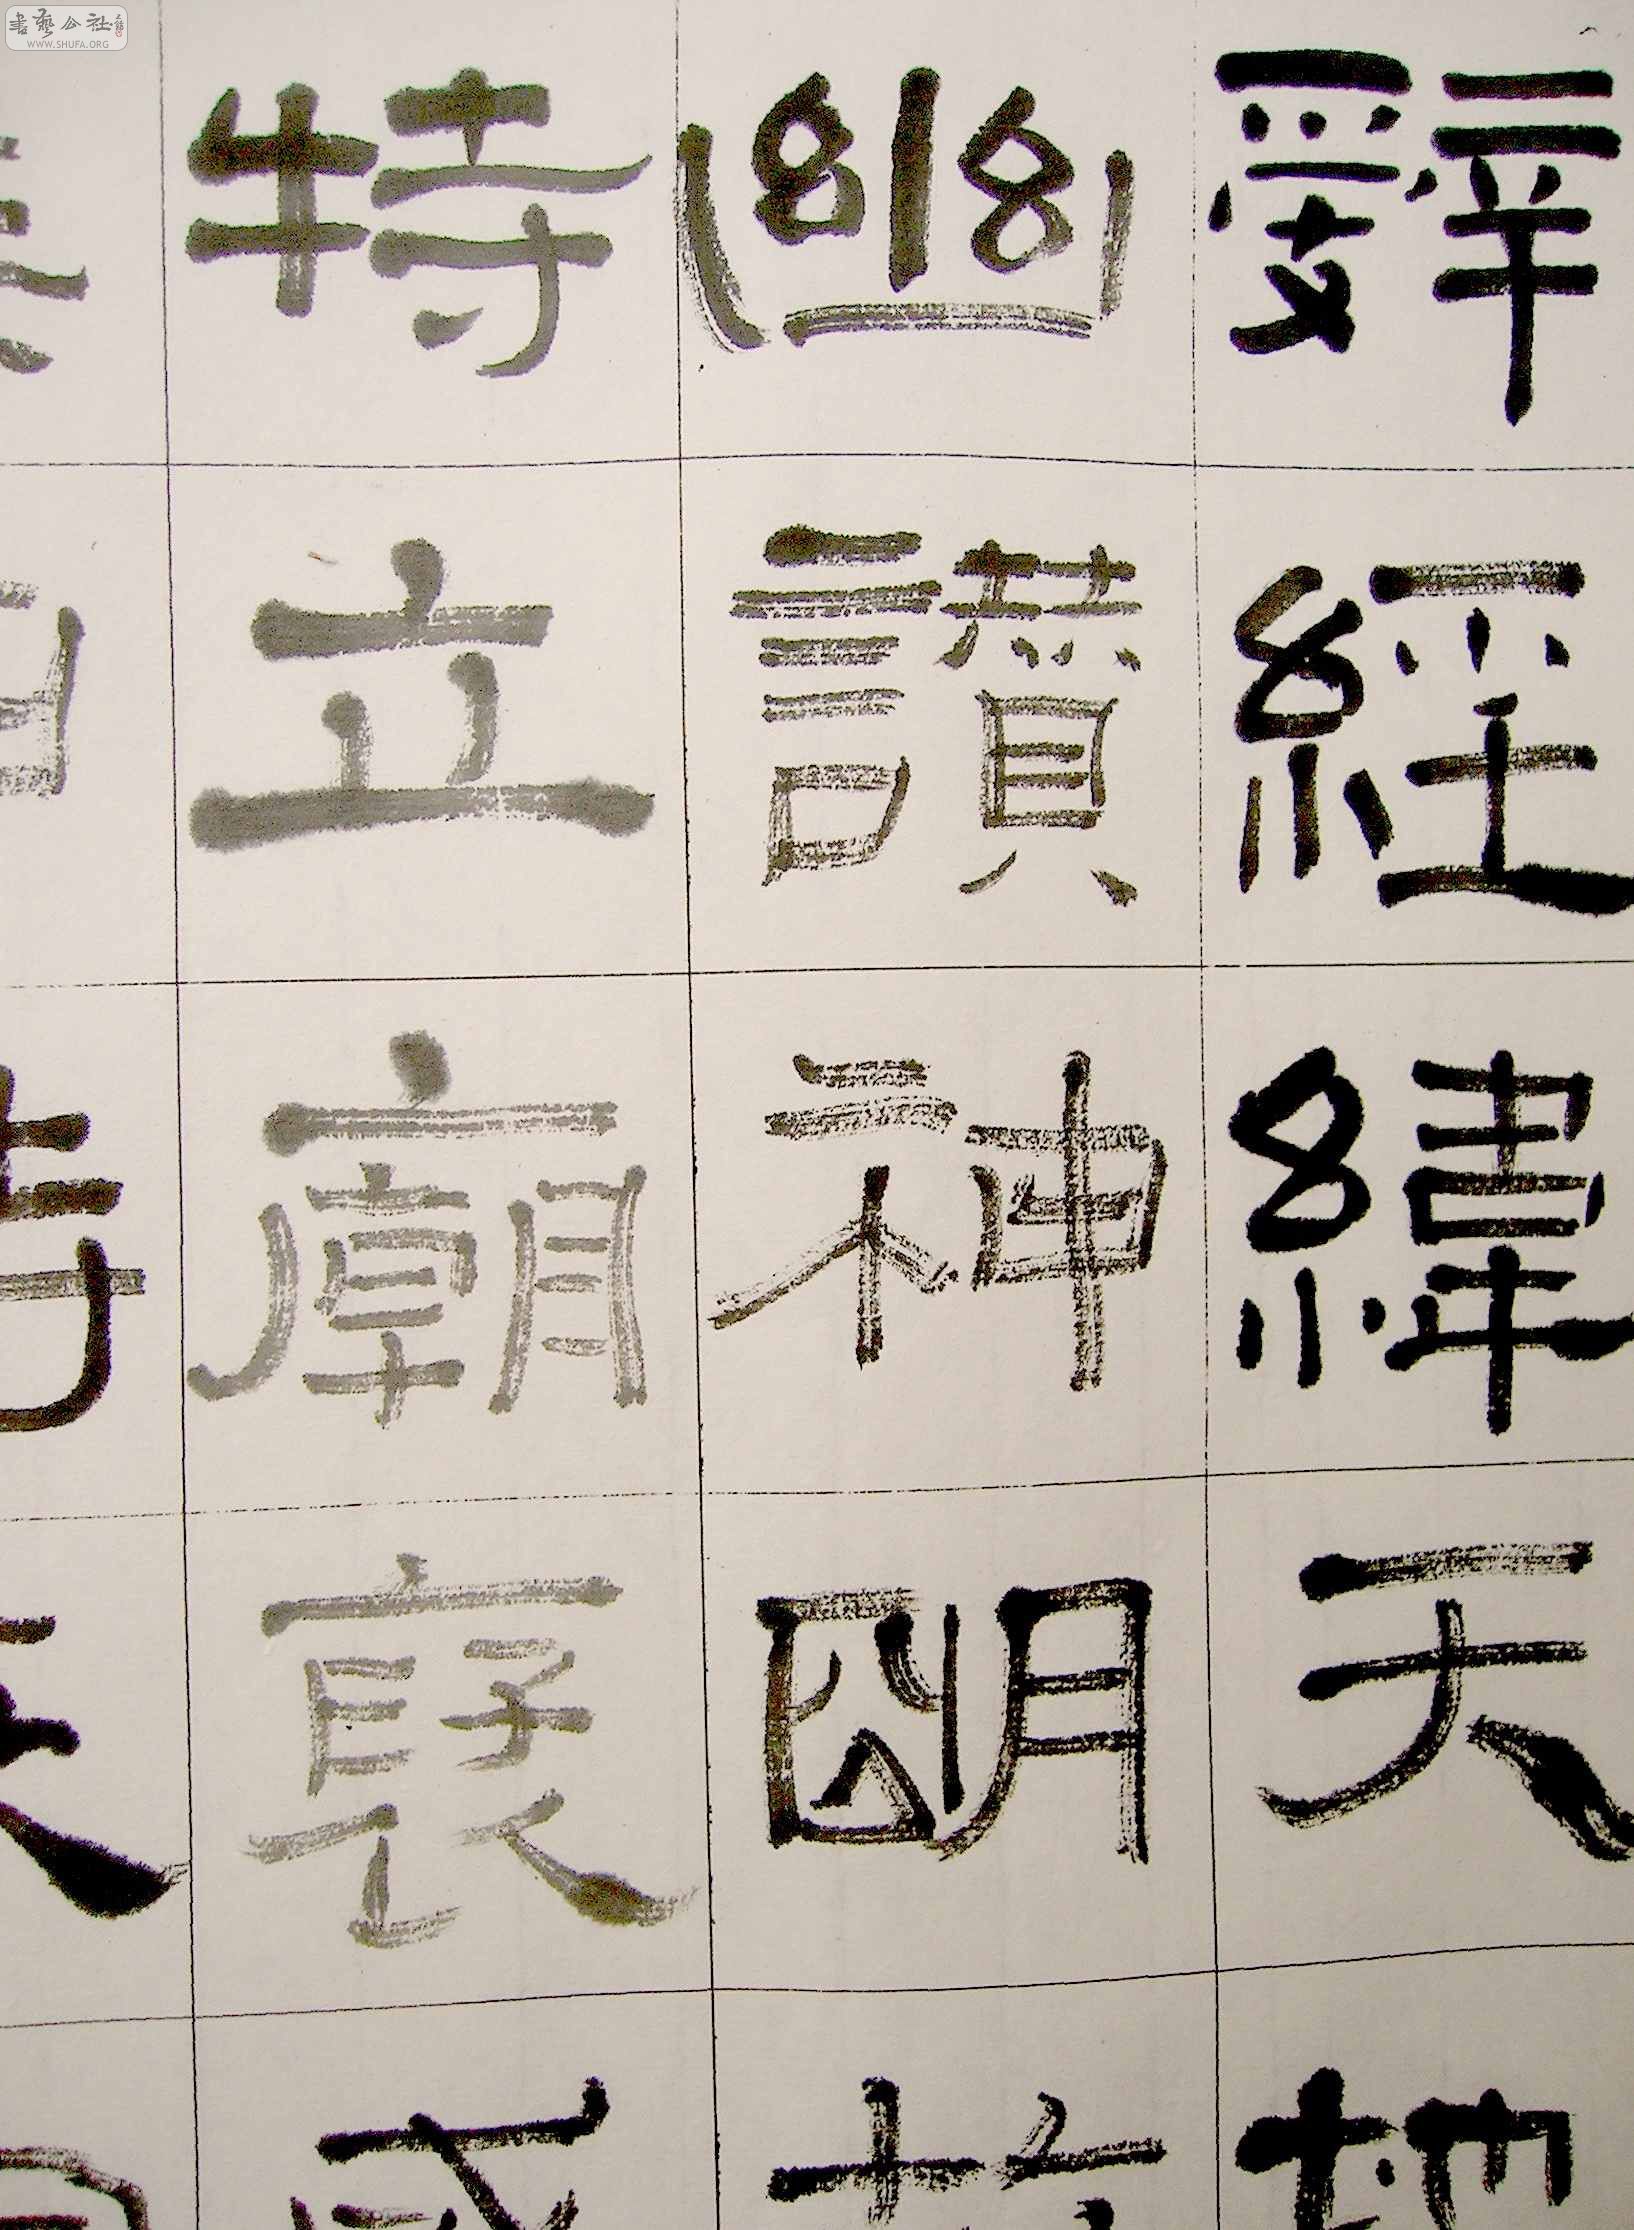 書藝公社
WWW.SHUFA.ORG
辭經緯天地
幽讚神明故
特立廟褒成